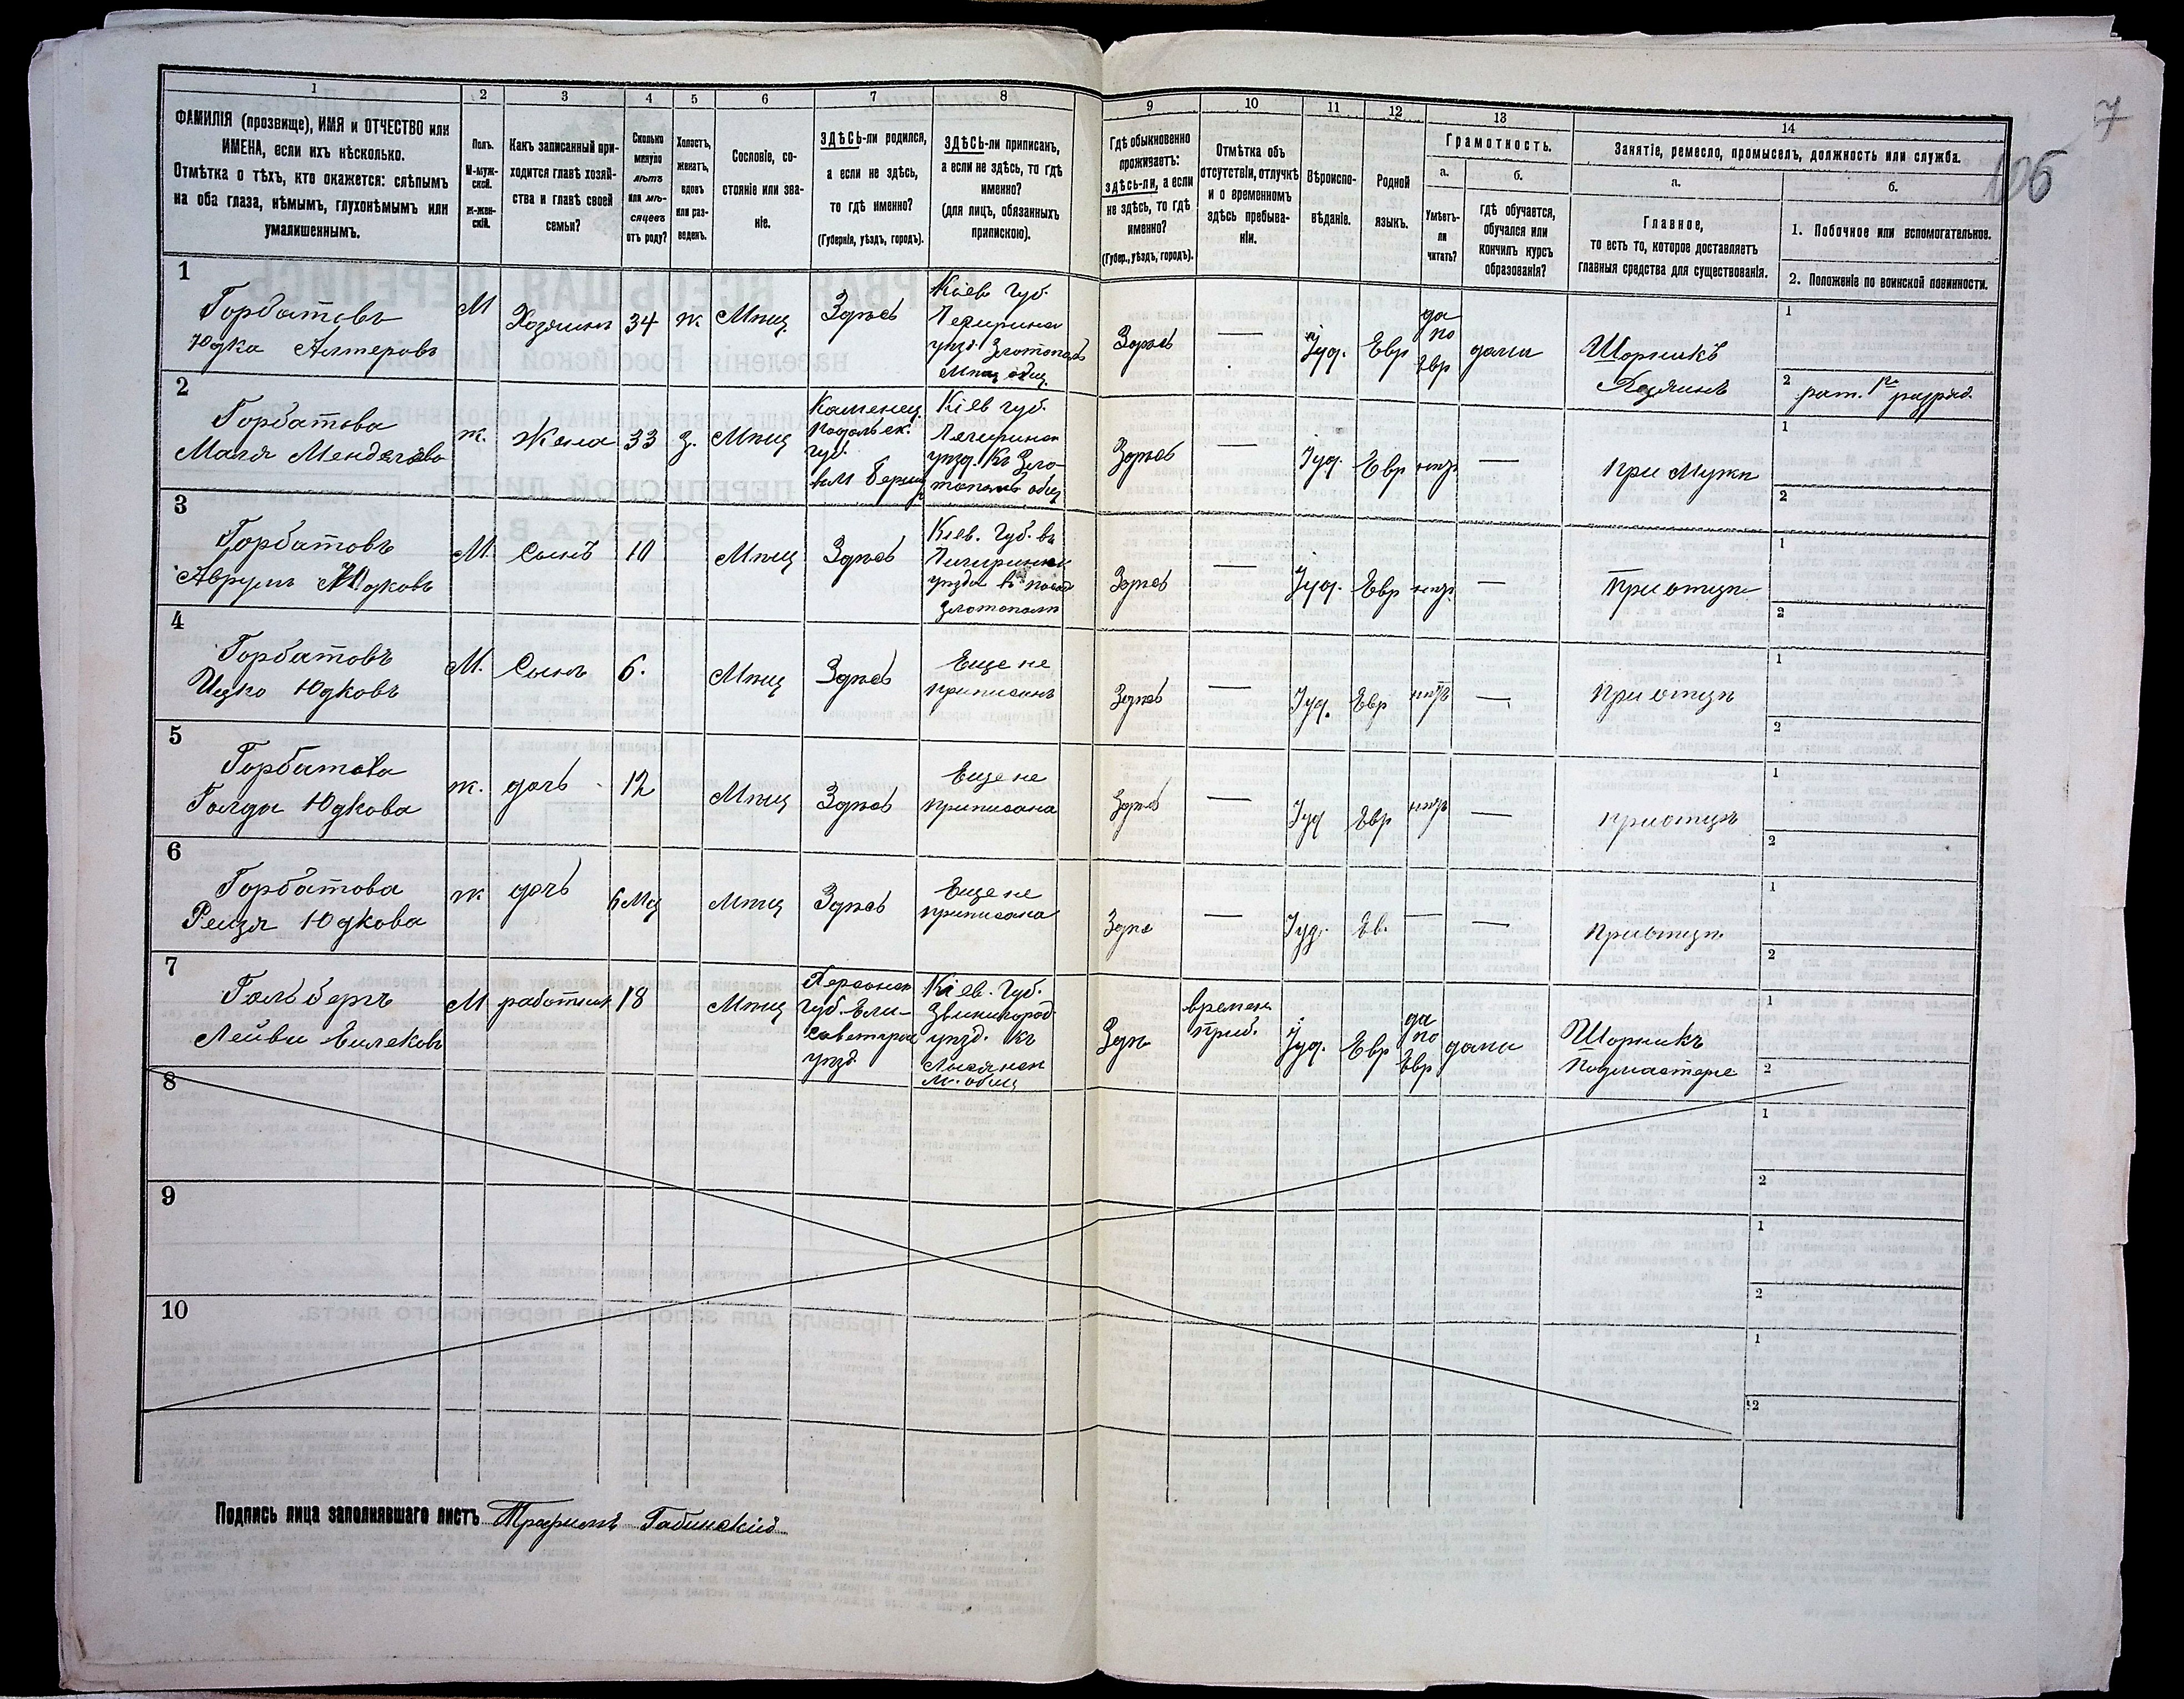 7
106
1
2
3
4
5
6
7
8
9
10
11
12
13
14
ФАМИЛІЯ (прозвище), ИМЯ и ОТЧЕСТВО или
ИМЕНА, если ихъ нѣсколько.
Отмѣтка о тѣхъ, кто окажется: слѣпымъ
на оба глаза, нѣмымъ, глухонѣмымъ или
умалишеннымъ.
Полъ.
М-муж-
ской.
Ж-жен-
скій.
Какъ записанный при-
ходится главѣ хозяй-
ства и главѣ своей
семьи?
Сколько
минуло
лѣтъ
или мѣ-
сяцевъ
отъ роду?
Холостъ,
женатъ,
вдовъ
или раз-
веденъ.
Сословіе, со-
стояніе или зва-
ніе.
ЗДѢСЬ-ли родился,
а если не здѣсь,
то гдѣ именно?
(Губернія, уѣздъ, городъ).
ЗДѢСЬ-ли приписанъ,
а если не здѣсь, то гдѣ
именно?
(для лицъ, обязанныхъ
припискою).
Гдѣ обыкновенно
проживаетъ:
здѣсь-ли, а если
не здѣсь, то гдѣ
именно?
(Губер., уѣздъ, городъ).
Отмѣтка объ
отсутствіи, отлучкѣ
и о временномъ
здѣсь пребыва-
ніи.
Вѣроиспо-
вѣданіе.
Родной
языкъ.
Грамотность.
а.
Умѣетъ-
ли
читать?
б.
гдѣ обучается,
обучался или
кончилъ курсъ
образованія?
Занятіе, ремесло, промыселъ, должность или служба.
а.
Главное,
то есть то, которое доставляетъ
главныя средства для существованія.
б.
1. Побочное или вспомогательное.
2. Положеніе по воинской повинности.
1
Горбатовъ
Юдка Алтеровъ
М
Хозяинъ
34
ж
Мѣщ
Здѣсь
Кіев Губ.
уѣзд. Златополь
Мѣщ общ.
Здѣсь
—
Іуд.
Евр
да
по
Евр
дома
Шорникъ
Хозяинъ
1
2 рат. 1го разряд.
2
Горбатова
Маля Менделѣва
ж.
Жена
33
з.
Мѣщ
Каменец.
Подольск.
губ.
Кіев губ.
уѣзд. Къ Зло-
общ
Здѣсь
—
Іуд.
Евр
нѣтъ
—
при Мужѣ
1
2
3
Горбатовъ
Аврумъ Юдковъ
М.
Сынъ
10
Мѣщ
Здѣсь
Кіев. Губ. въ
уѣзда
Златополѣ
Здѣсь
—
Іуд.
Евр
нѣтъ
—
При отцѣ
1
2
4
Горбатовъ
Ицко Юдковъ
М.
Сынъ
6.
Мѣщ
Здѣсь
Еще не
приписанъ
Здѣсь
—
Іуд.
Евр
нѣтъ
—
При отцѣ
1
2
5
Горбатова
Голда Юдкова
ж.
дочь
12
Мѣщ
Здѣсь
Еще не
приписана
Здѣсь
—
Іуд
Евр
нѣтъ
—
при отцѣ
1
2
6
Горбатова
Рейзя Юдкова
ж
дочь
6 Мц
Мѣщ
Здѣсь
Еще не
приписана
Здѣс
—
Іуд.
Ев.
—
—
при отцѣ
1
2
7
Гольбергъ
М
работник
18
Мѣщ
Херсонск
губ. Ели-
саветград
уѣзд
Кіев. Губ.
Звенигород.
уѣзд. къ
Лысянск
м. общ
Здѣ
времен.
приб.
Іуд.
Евр
да
по
Евр
дома
Шорникъ
Подмастерье
1
2
8
1
2
9
1
2
10
1
2
Подпись лица заполнявшаго листъ Трофимъ Габинскій